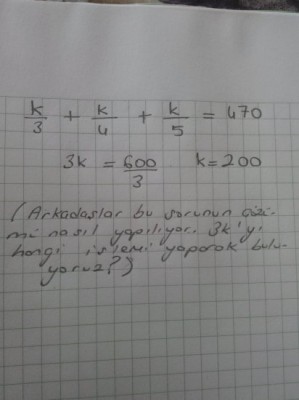 k/3 + k/4 + k/5 = 470
3k = 600/3 k=200
(Arkadaslar bu sorunun çözü-
mü nasıl yapılıyor. 3k'yı
hangi işlemi yaparak bulu-
yoruz?)